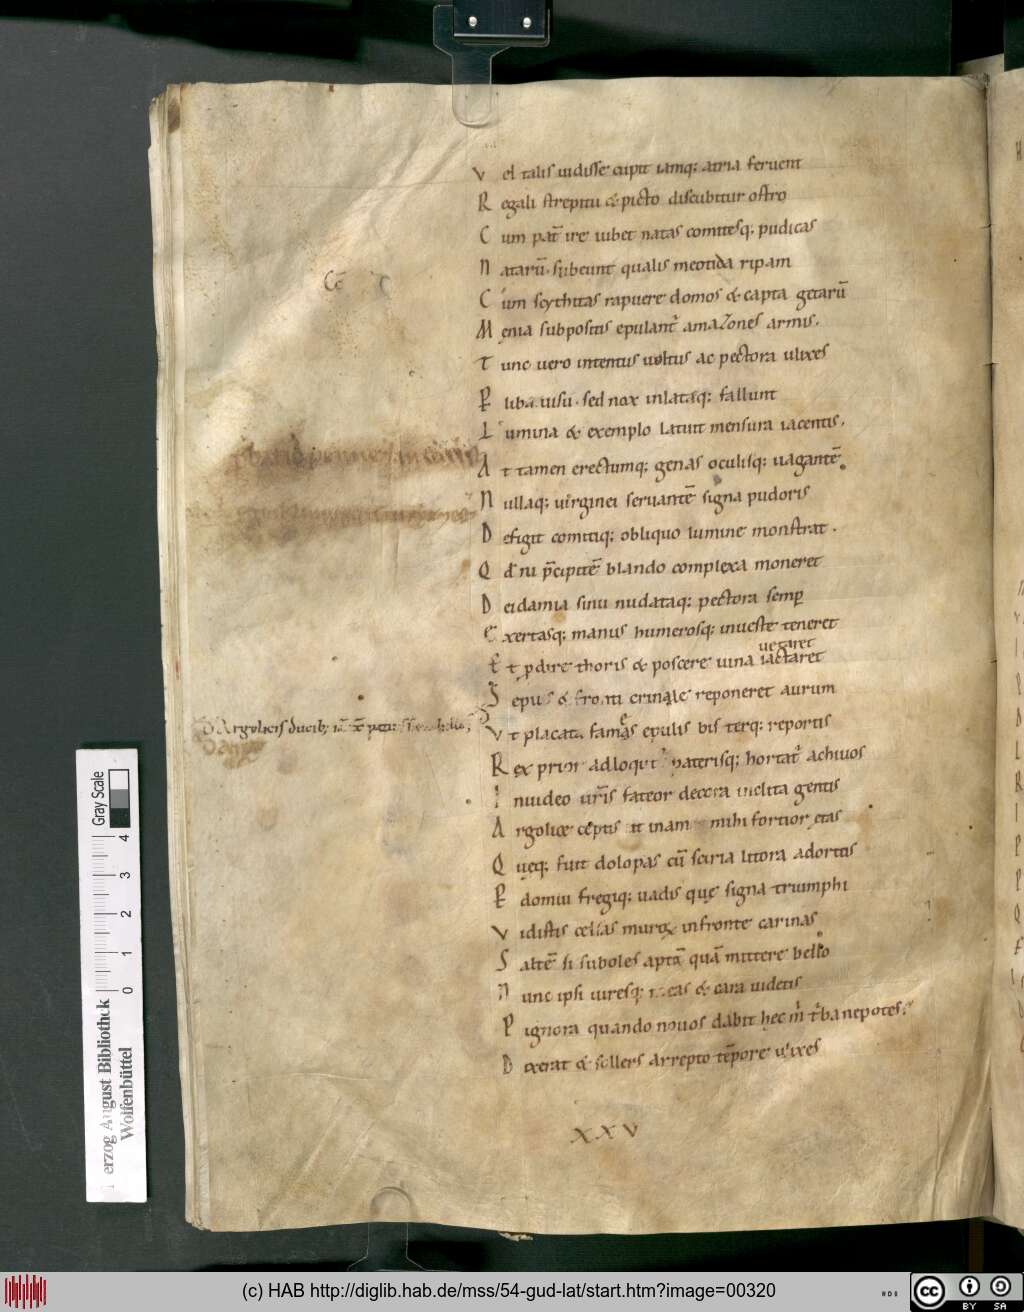 V el talis uidisse cupit iamq; atria feruent
R egali strepitu & picto discubitur ostro
C um pat̄ ire iubet natas comitesq; pudicas
N atarū. subeunt qualis meotida ripam
C um scythitas rapuere domos & capta getarū
M ęnia subpositis epulant᷑ amazones armis.
T unc uero intentus uoltus ac pectora ulixes
P liba uisu. sed nox inlataq; fallunt
L umina & exemplo latuit mensura iacentis.
A t tamen erectumq; genas oculisq; uagantē
N ullaq; uirginei seruantē signa pudoris
D efigit comitiq; obliquo lumine monstrat.
Q d ni p̄cipitē blando complexa moneret
D eidamia sinu nudataq; pectora semp̄
E xertasq; manus humerosq; inueste teneret
uetaret
E t ꝓdire thoris & poscere uina iactaret
S ępius & fronti crinale reponeret aurum
D Argolicis ducib;
V t placata famęs epulis bis terq; repostis
R ex prior adloquit᷑ paterisq; hortat᷑ achiuos
I nuideo ur̄is fateor decora inclita gentis
A rgolicę ceptis mihi fortior ętas
Q uęq; fuit dolopas cū sciria litora adortis
P domui fregiq; uadis quę signa triumphi
V idistis celsas murox̨ infronte carinas
S altē si suboles aptā quā mittere bello
N unc ipsi uiresq; meas & cara uidetis
P ignora quando nouos dabit hęc m̄ t᷑ba nepotes.
D ixerat & sollers arrepto tēpore ulixes
XXV
Gray Scale
0 1 2 3 4
erzog August Bibliothek
Wolfenbüttel
(c) HAB http://diglib.hab.de/mss/54-gud-lat/start.htm?image=00320
cc BY SA